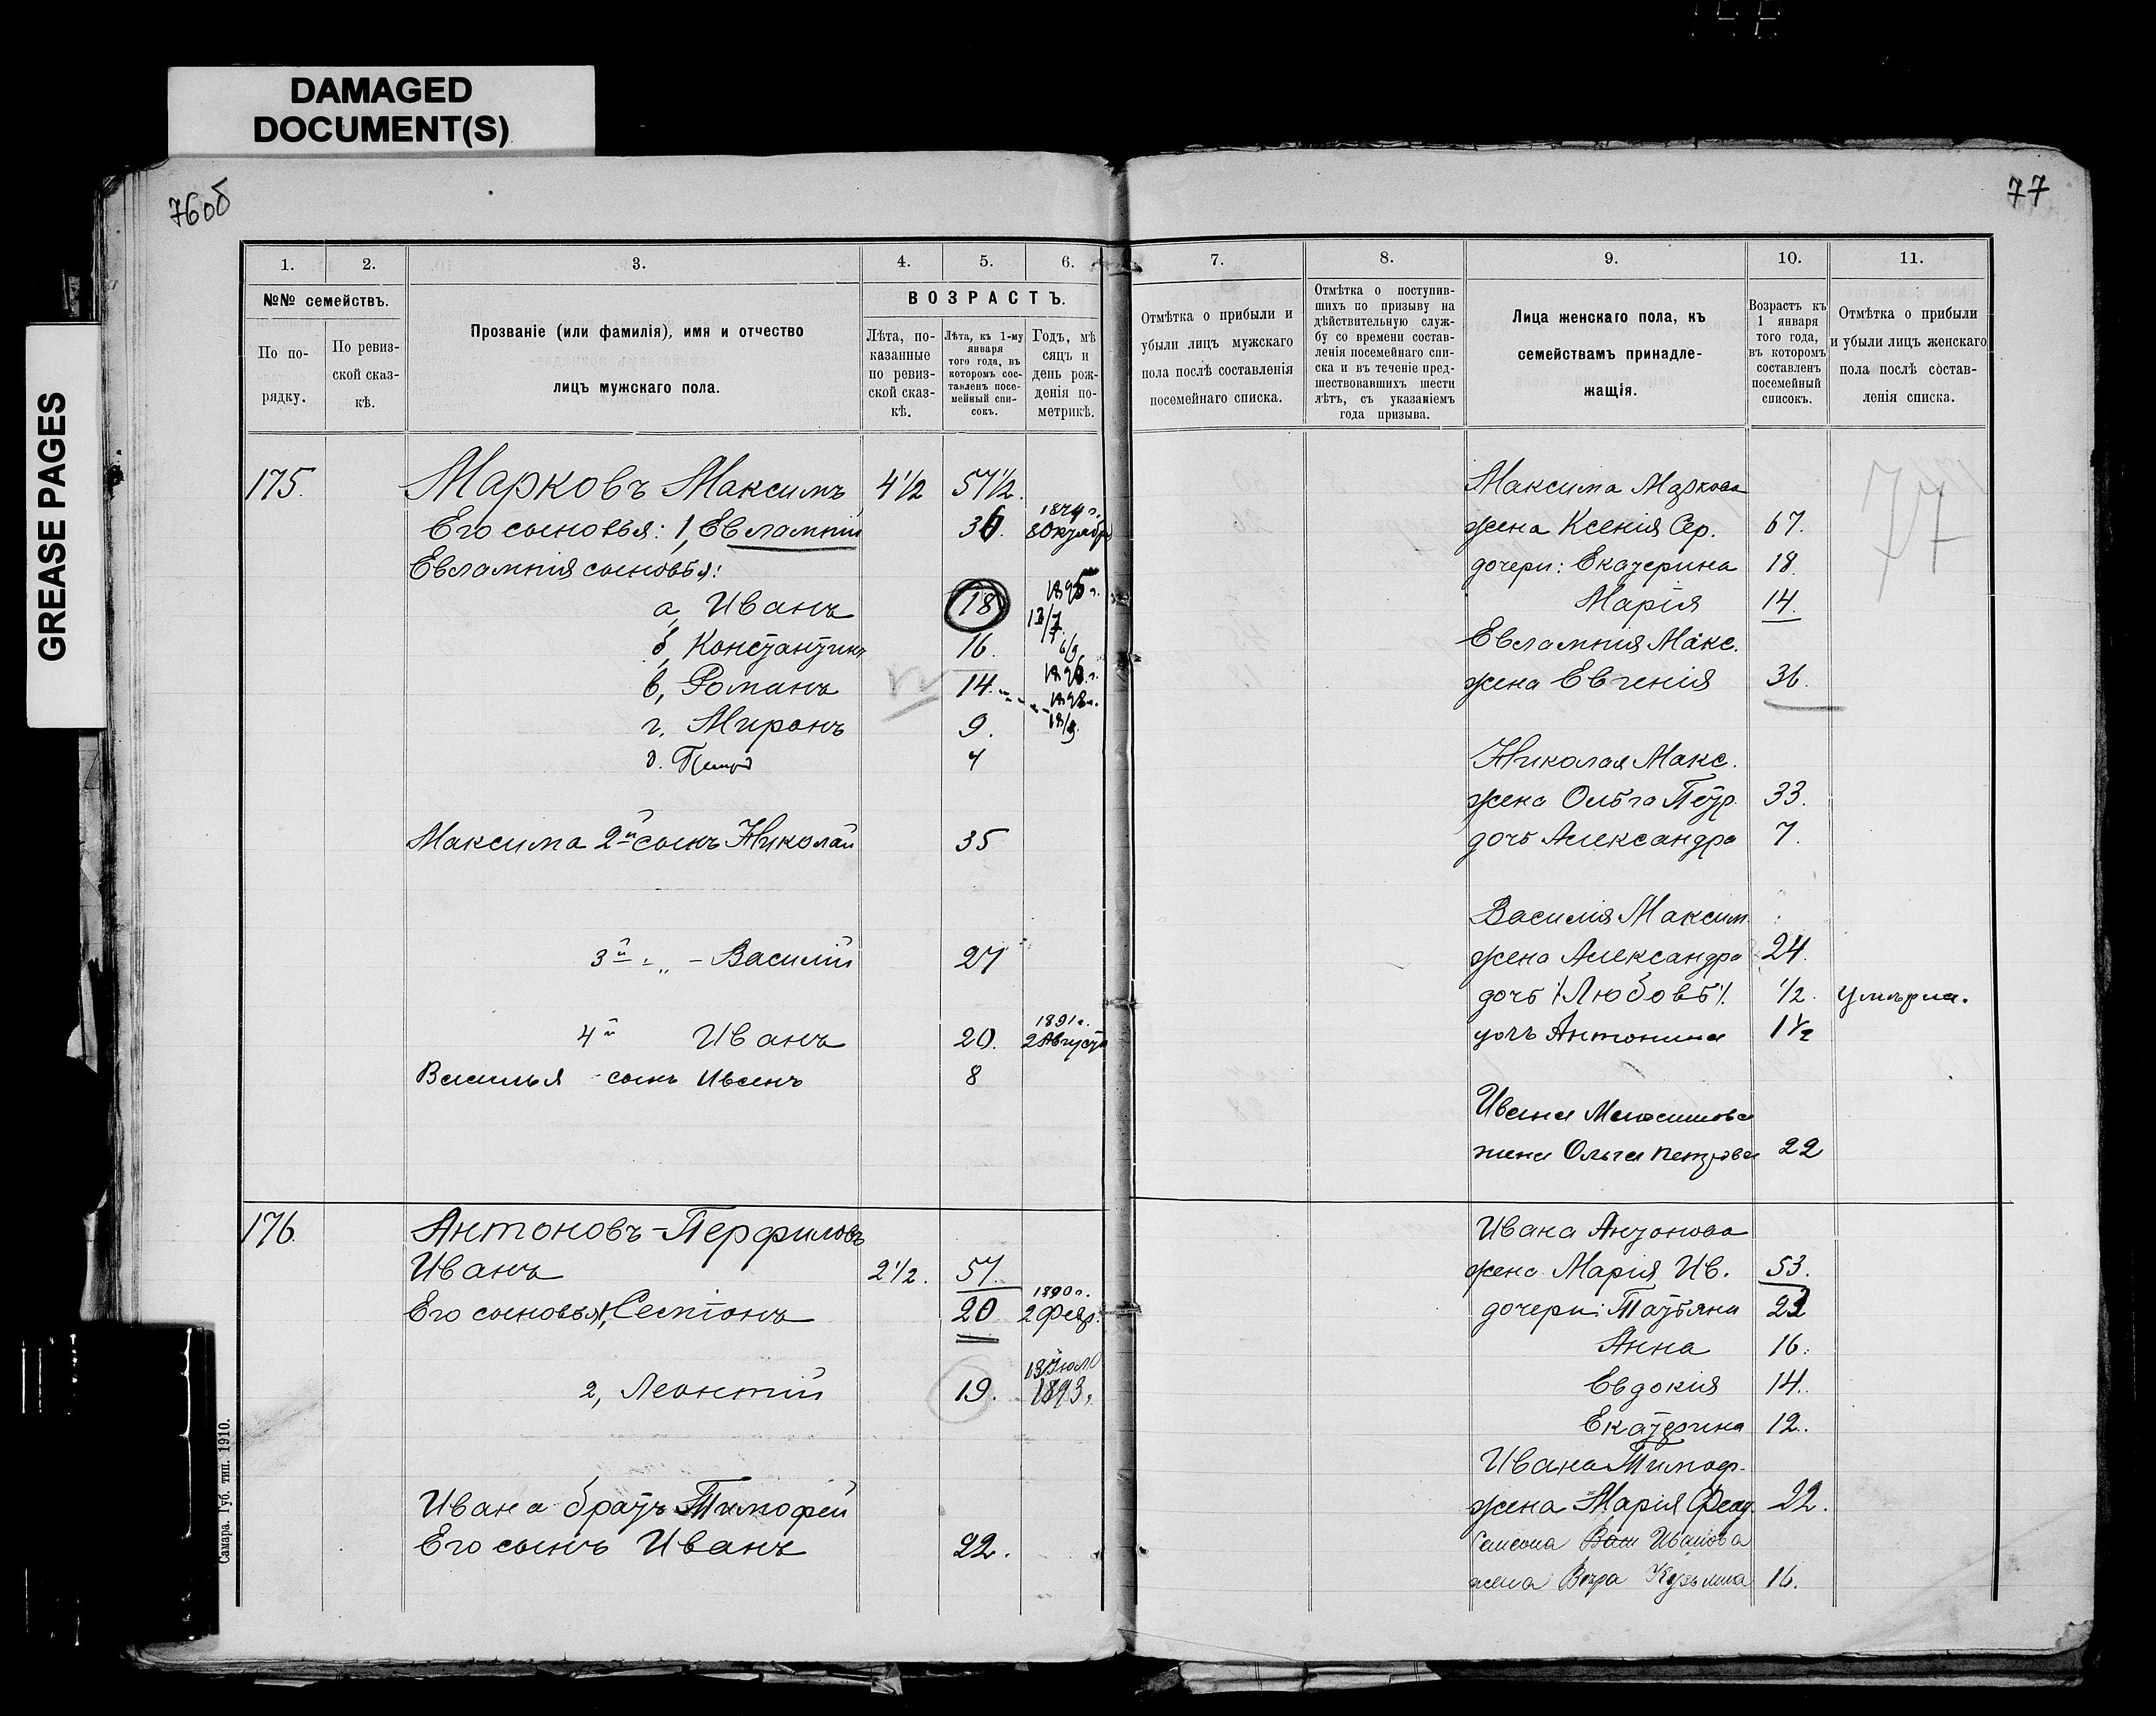 DAMAGED
DOCUMENT(S)
GREASE PAGES
76об
77
1.
2.
3.
4.
5.
6.
№№ семействъ.
ВОЗРАСТЪ.
По по-
рядку.
По ревиз-
ской сказ-
кѣ.
Прозваніе (или фамилія), имя и отчество
лицъ мужскаго пола.
Лѣта, по-
казанные
по ревиз-
ской сказ-
кѣ.
Лѣта, къ 1-му
января
того года, въ
которомъ сос-
тавленъ посе-
мейный спи-
сокъ.
Годъ, мѣ
сяцъ и
день рож-
денія по-
метрикѣ.
175. Марковъ Максимъ 4 1/2 57 1/2.
Его сыновья: 1, Евлампій 36. 1874 г. 8 Октября
Евлампія сыновья:
а, Иванъ 18 1895 г. 13/7
б, Константинъ 16. 6/9 1896 г.
в, Романъ 14. 1898 г. 18/9
г, Миронъ 9.
д. Петръ 4
Максима 2й сынъ Николай 35
3й " - Василій 27
4й Иванъ 20. 1891 г. 2 Августа
Василья сынъ Иванъ 8
176. Антоновъ-Перфиловъ
Иванъ 2 1/2. 57.
Его сыновья: 1, 20 1890 г. 2 Февр.
2, Леонтій 19. 13 Июля 1893.
Ивана братъ Тимофей
Его сынъ Иванъ 22.
Самара. Губ. тип. 1910.
7.
8.
9.
10.
11.
Отмѣтка о прибыли и
убыли лицъ мужскаго
пола послѣ составленія
посемейнаго списка.
Отмѣтка о поступив-
шихъ по призыву на
дѣйствительную служ-
бу со времени состав-
ленія посемейнаго спи-
ска и въ теченіе пред-
шествовавшихъ шести
лѣтъ, съ указаніемъ
года призыва.
Лица женскаго пола, къ
семействамъ принадле-
жащія.
Возрастъ къ
1 января
того года,
въ которомъ
составленъ
посемейный
списокъ.
Отмѣтка о прибыли
и убыли лицъ женскаго
пола послѣ состав-
ленія списка.
77
Максима Маркова
жена Ксенія Сер. 67.
дочери: Екатерина 18.
Марія 14.
Евлампія Макс.
жена Евгенія 36.
Николая Макс.
жена Ольга Петр. 33.
дочь Александра 7.
Василія Максим.
жена Александра 24.
дочь /Любовь/. 1/2. умерла.
дочь Антонина 1 1/2
Ивана Максимова
жена Ольга Петрова 22
Ивана Антонова
жена Марія Ив. 53.
дочери: Татьяна 22
Анна 16.
Евдокія 14.
Екатерина 12.
Ивана Тимоф.
жена Марія Феод. 22.
Самсона Ивановa
жена Вѣра Кузьмина 16.